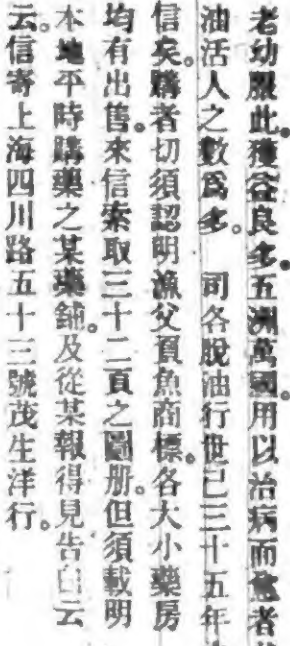 老幼服此。獲益良多。五洲萬國。用以治病而愈者
油活人之數爲多。　司各脫油行世已三十五年
信矣。購者切須認明漁父負魚商標。各大小藥房
均有出售。來信索取三十二頁之圖册。但須載明
本地平時購藥之某藥鋪。及從某報得見告白云
云。信寄上海四川路五十三號茂生洋行。